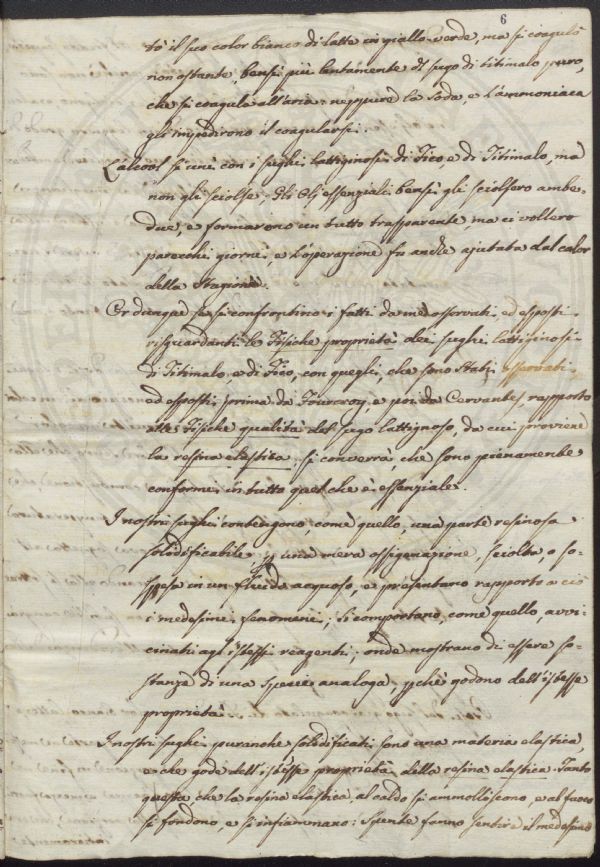 6
tò il suo color bianco di latte in giallo-verde, ma si coagulò
non ostante, bensì più lentamente del sugo di titimalo puro,
che si coagula all'aria: neppure la Soda, e l'ammoniaca
gl'impedirono il coagularsi.
L'alcool si unì con i sughi lattiginosi di Fico, e di Titimalo, ma
non gli sciolse. Gli Olj essenziali bensì gli sciolsero ambe-
due, e formarono un tutto trasparente, ma ci vollero
parecchi giorni, e l'operazione fu anche ajutata dal calor
della Stagione.
Or dunque se si confrontino i fatti da me osservati, ed esposti
risguardanti le Fisiche proprietà dei sughi lattiginosi
di Titimalo, e di Fico, con quegli, che sono stati osservati
ed esposti prima da Fourcroy, e poi da Cervantes, rapporto
alle Fisiche qualità del sugo lattignoso, da cui proviene
la resina elastica: si converrà, che sono pienamente
conformi in tutto quel che è essenziale.
I nostri sughi contengono, come quello, una parte resinosa
solidificabile una mera ossigenazione, sciolta, o so-
spesa in un fluido acquoso, e presentano rapporto a ciò
i medesimi fenomeni; si comportano, come quello, avvi-
cinati agl'istessi reagenti; onde mostrano di essere so-
stanze di una specie analoga, godono dell'istesse
proprietà.
I nostri sughi puranche solidificati sono una materia elastica,
e che gode dell'istesse proprietà della resina elastica. Tanto
questa che la resina elastica al caldo si ammolliscono, e al fuoco
si fondono, e si infiammano: Spente fanno sentire il medesimo